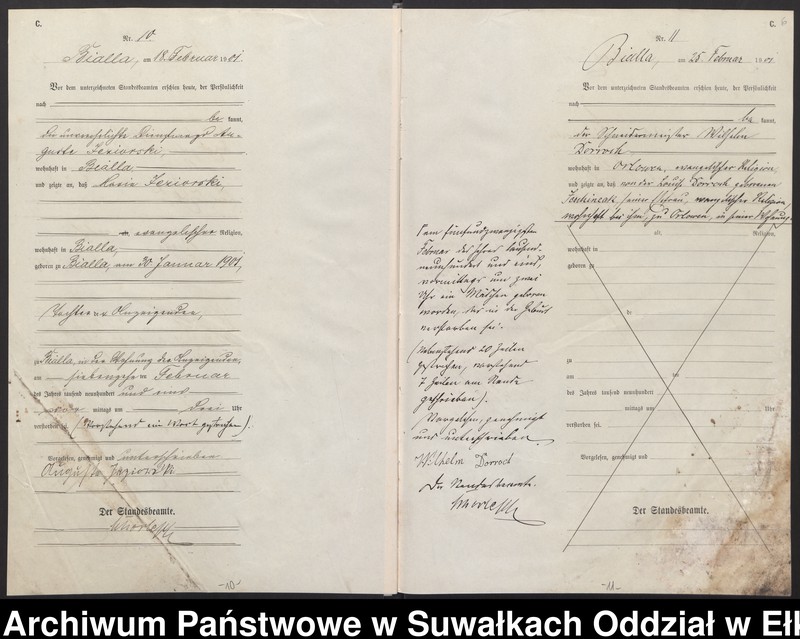 C.
Nr. 10
Bialla, am 18. Februar 1901.
Vor dem unterzeichneten Standesbeamten erschien heute, der Persönlichkeit
nach
be kannt,
die unverehelichte Dienstmagd Au-
guste Jeziorski,
wohnhaft in Bialla
und zeigte an, daß Marie Jeziorski,
evangelischer Religion,
wohnhaft in Bialla,
geboren zu Bialla, am 30. Januar 1901,
Tochter der Anzeigenden,
zu Bialla, in der Wohnung der Anzeigenden,
am siebenzehnten Februar
des Jahres tausend neunhundert und eins
vor mittags um drei Uhr
verstorben sei. (Vorstehend ein Wort gestrichen).
Vorgelesen, genehmigt und unterschrieben
Auguste Jeziorski
Der Standesbeamte.
-10-
C. 6
Nr. 11
Bialla, am 25. Februar 1901
Vor dem unterzeichneten Standesbeamten erschien heute, der Persönlichkeit
nach
be kannt,
der Schneidermeister Wilhelm
Dorroch
wohnhaft in Orlowen, evangelischer Religion,
und zeigte an, daß von der Louise Dorroch geborenen
seiner Ehefrau, evangelischer Religion,
wohnhaft bei ihm, zu Orlowen, in seiner Wohnung
alt, Religion,
wohnhaft in
geboren zu
de
zu
am ten
des Jahres tausend neunhundert
mittags um Uhr
verstorben sei.
Vorgelesen, genehmigt und
Der Standesbeamte.
am fünfundzwanzigsten
Februar des Jahres tausend
neunhundert und eins,
vormittags um zwei
Uhr ein Mädchen geboren
worden, das in der Geburt
verstorben sei.
(Nebenstehend 20 Zeilen
gestrichen, vorstehend
7 Zeilen am Rande
geschrieben).
Vorgelesen, genehmigt
und unterschrieben
Wilhelm Dorroch
Der Standesbeamte.
-11-
Archiwum Państwowe w Suwałkach Oddział w Eł